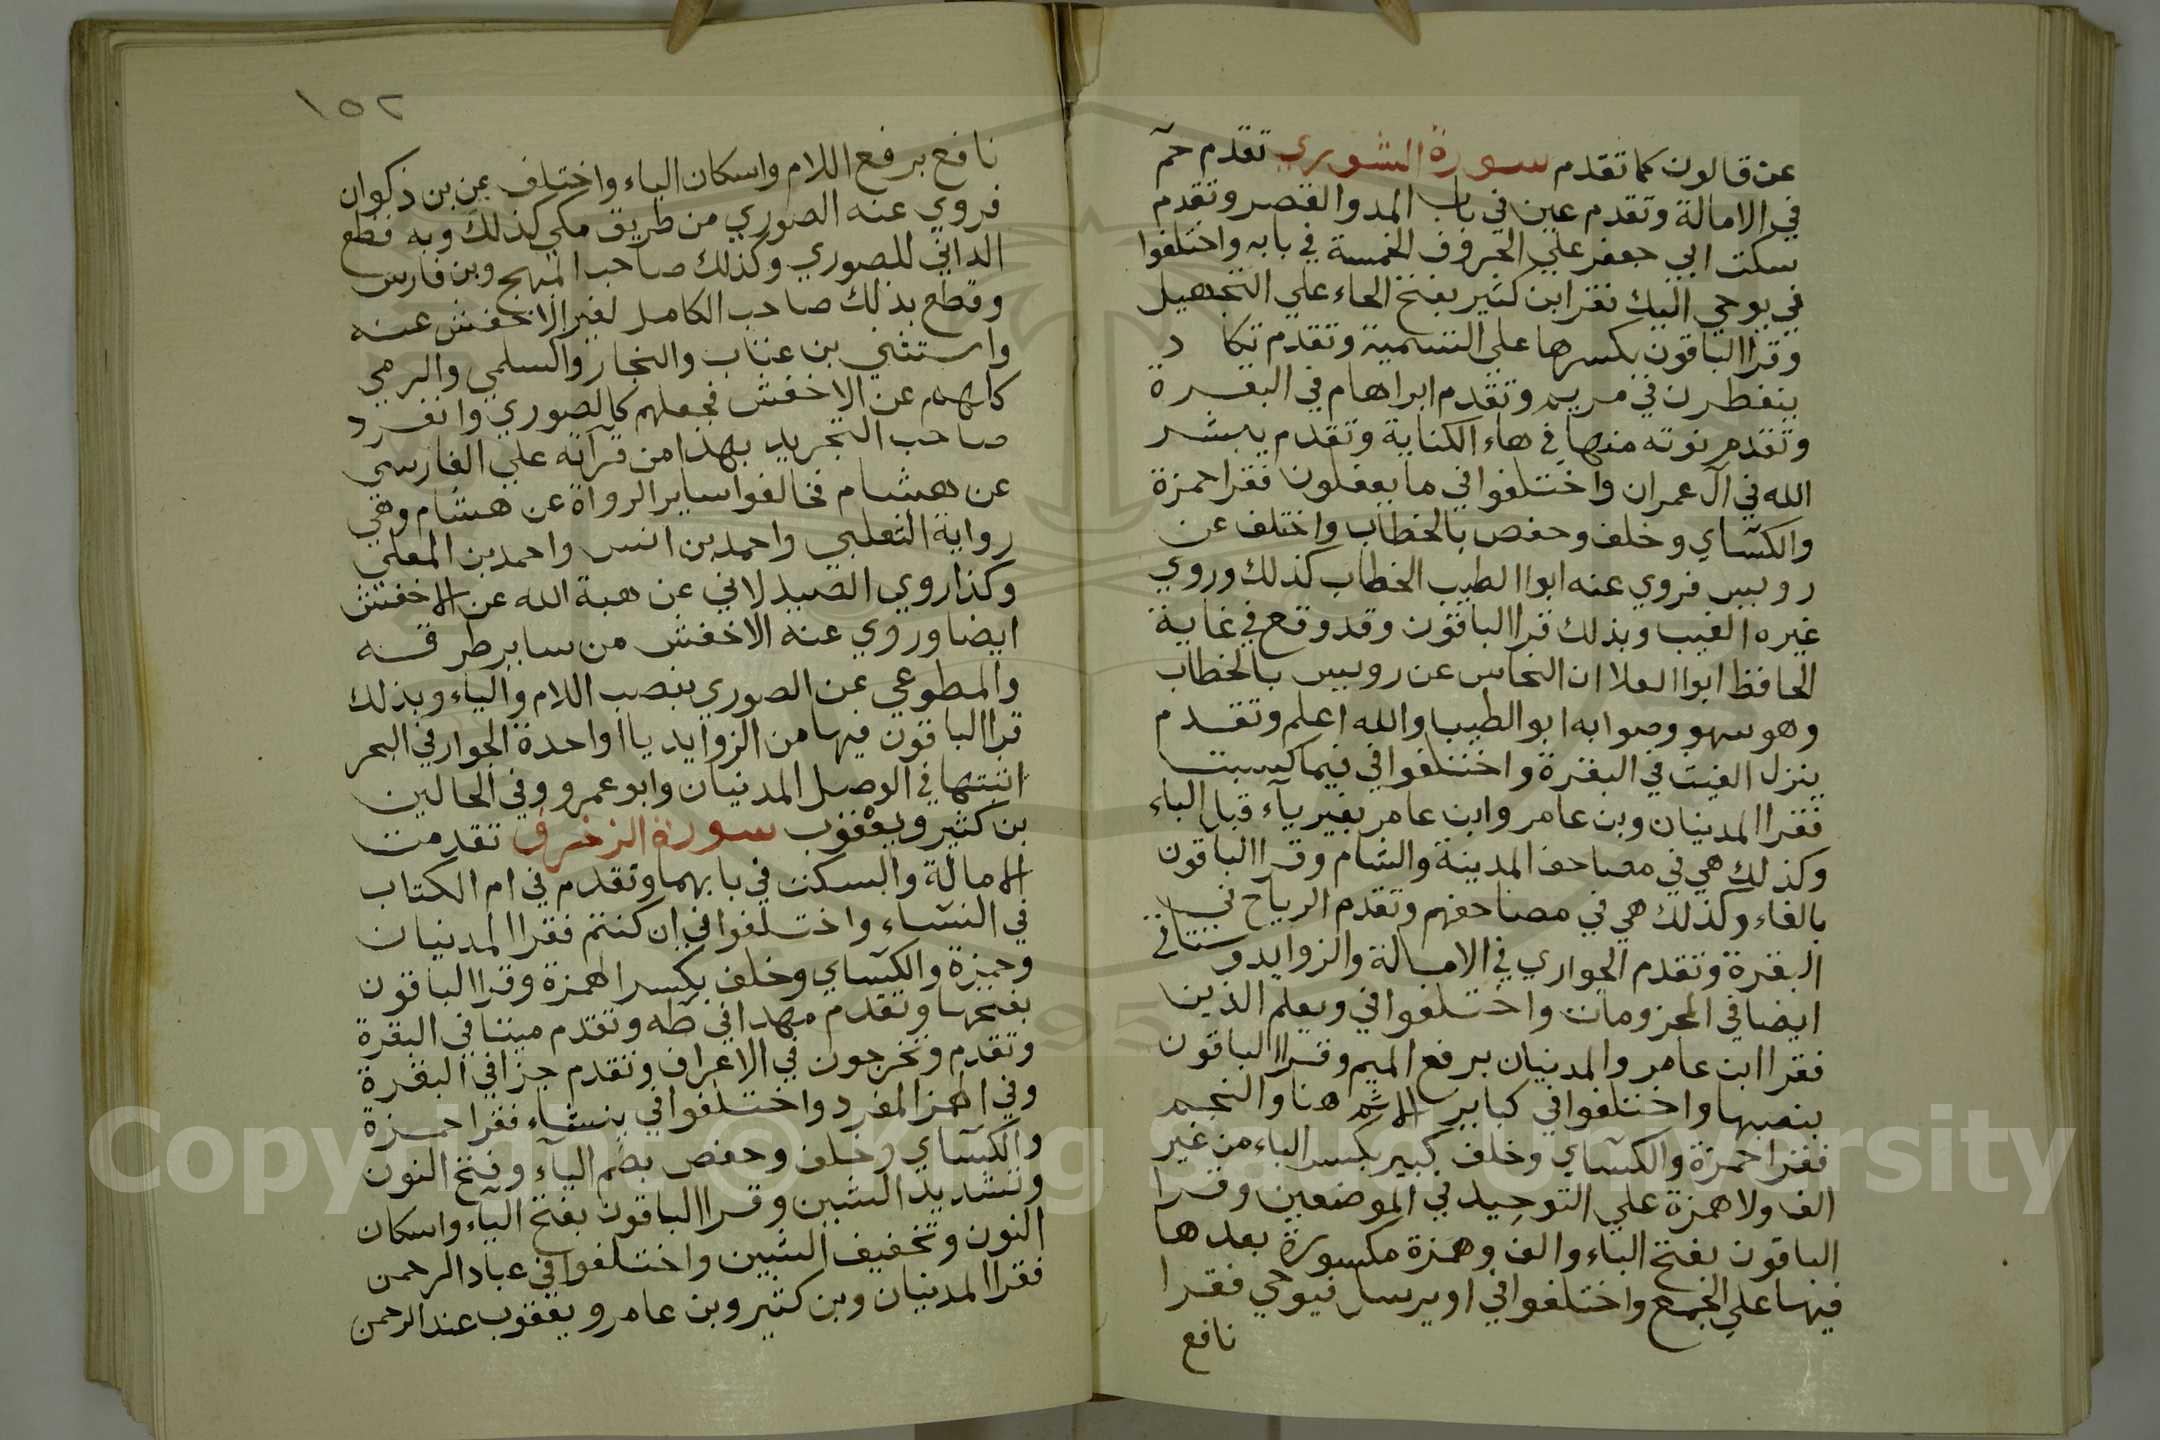 عن قالون كما تقدم سورة الشوري تقدم حمٓ
في الامالة وتقدم عين في باب المد والقصر وتقدم
سكت ابي جعفر علي الحروف الخمسة في بابه واختلفوا
في يوحي اليك فقرا ابن كثير بفتح الحاء علي التجهيل
وقرا الباقون بكسرها علي التسمية وتقدم تكا د
ينفطرن في مريم وتقدم ابراهام في البقرة
وتقدم نوته منها في هاء الكناية وتقدم يبشر
الله في آل عمران واختلفوا في ما يفعلون فقرا حمزة
والكسآي وخلف وحفص بالخطاب واختلف عن
رويس فروي عنه ابوا الطيب الخطاب كذلك وروي
غيره الغيب وبذلك قرا الباقون وقد وقع في غاية
الحافظ ابوا العلا ان النحاس عن رويس بالخطاب
وهو سهو وصوابه ابو الطيب والله اعلم وتقدم
ينزل الغيث في البقرة واختلفوا في فيما كسبت
فقرا المدنيان وبن عامر وابن عامر بغير يآء قبل الباء
وكذلك هي في مصاحف المدينة والشام وقرا الباقون
بالفاء وكذلك هي في مصاحفهم وتقدم الرياح في
البقرة وتقدم الجواري في الامالة والزوايد وستاتي
ايضا في المحزومات واختلفوا في ويعلم الذين
فقرا ابن عامر والمدنيان برفع الميم وقرا الباقون
بنصبها واختلفوا في كباير الاثم هنا والنجم
فقرا حمزة والكسآي وخلف كبير بكسر الباء من غير
الف ولا همزة علي التوحيد في الموضعين وقرا
الباقون بفتح الباء والف وهمزة مكسورة بعدها
فيهما علي الجمع واختلفوا في او يرسل فيوحي فقرا
نافع
١٥٢
نافع برفع اللام واسكان الياء واختلف عن بن ذكوان
فروي عنه الصوري من طريق مكي كذلك وبه قطع
الداني للصوري وكذلك صاحب المبهج وبن فارس
وقطع بذلك صاحب الكامل لغير الاخفش عنه
واستثني بن عتاب والنجار والسلمي والبرمي
كلهم عن الاخفش فجعلهم كالصوري وانفرد
صاحب التجريد بهذا من قرآته علي الفارسي
عن هشام فخالفوا ساير الرواة عن هشام وهي
رواية التغلبي واحمد بن انس واحمد بن المعلي
وكذا روي الصيدلاني عن هبة الله عن الاخفش
ايضا وروي عنه الاخفش من ساير طرقه
والمطوعي عن الصوري بنصب اللام والياء وبذلك
قرا الباقون فيها من الزوايد ياا واحدة الجوار في البحر
اثبتها في الوصل المدنيان وابو عمرو وفي الحالين
بن كثير ويعقوب سورة الزخرف تقدمت
الامالة والسكت في بابهما وتقدم في ام الكتاب
في النسآء واختلفوا في ان كنتم فقرا المدنيان
وحمزة والكسآي وخلف بكسر الهمزة وقرا الباقون
بفتحها وتقدم مهدا في طه وتقدم ميتا في البقرة
وتقدم وتخرجون في الاعراف وتقدم جزا في البقرة
وفي الهمز المفرد واختلفوا في ينشاء فقرا حمزة
والكسآي وخلف وحفص بضم اليآء وفتح النون
وتشديد الشين وقرا الباقون بفتح اليآء واسكان
النون وتخفيف الشين واختلفوا في عباد الرحمن
فقرا المدنيان وبن كثير وبن عامر ويعقوب عند الرحمن
Copyright © King Saud University